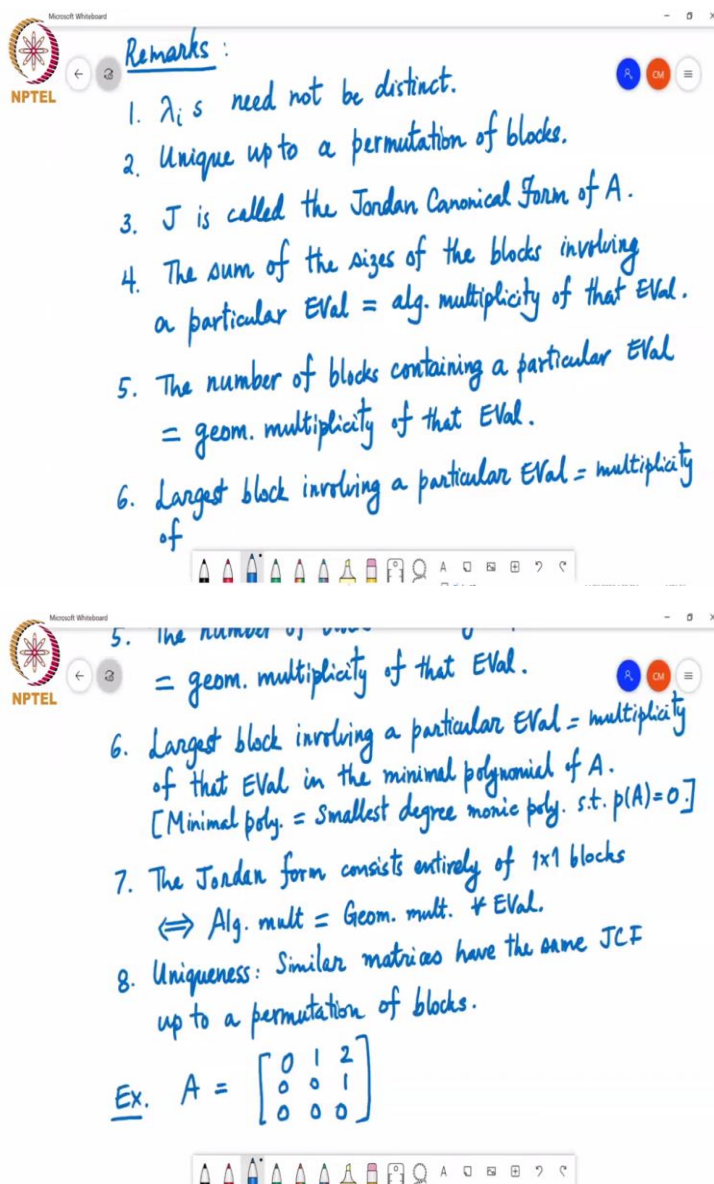 Microsoft Whiteboard
NPTEL
CM
Remarks :
1. λi s need not be distinct.
2. Unique up to a permutation of blocks.
3. J is called the Jordan Canonical Form of A.
4. The sum of the sizes of the blocks involving
a particular EVal = alg. multiplicity of that EVal.
5. The number of blocks containing a particular EVal
= geom. multiplicity of that EVal.
6. Largest block involving a particular EVal = multiplicity
of
Microsoft Whiteboard
NPTEL
CM
5. The number of
= geom. multiplicity of that EVal.
6. Largest block involving a particular EVal = multiplicity
of that EVal in the minimal polynomial of A.
[Minimal poly. = Smallest degree monic poly. s.t. p(A)=0.]
7. The Jordan form consists entirely of 1x1 blocks
⇔ Alg. mult = Geom. mult. ∀ EVal.
8. Uniqueness: Similar matrices have the same JCF
up to a permutation of blocks.
Ex. A = [0 1 2
0 0 1
0 0 0]